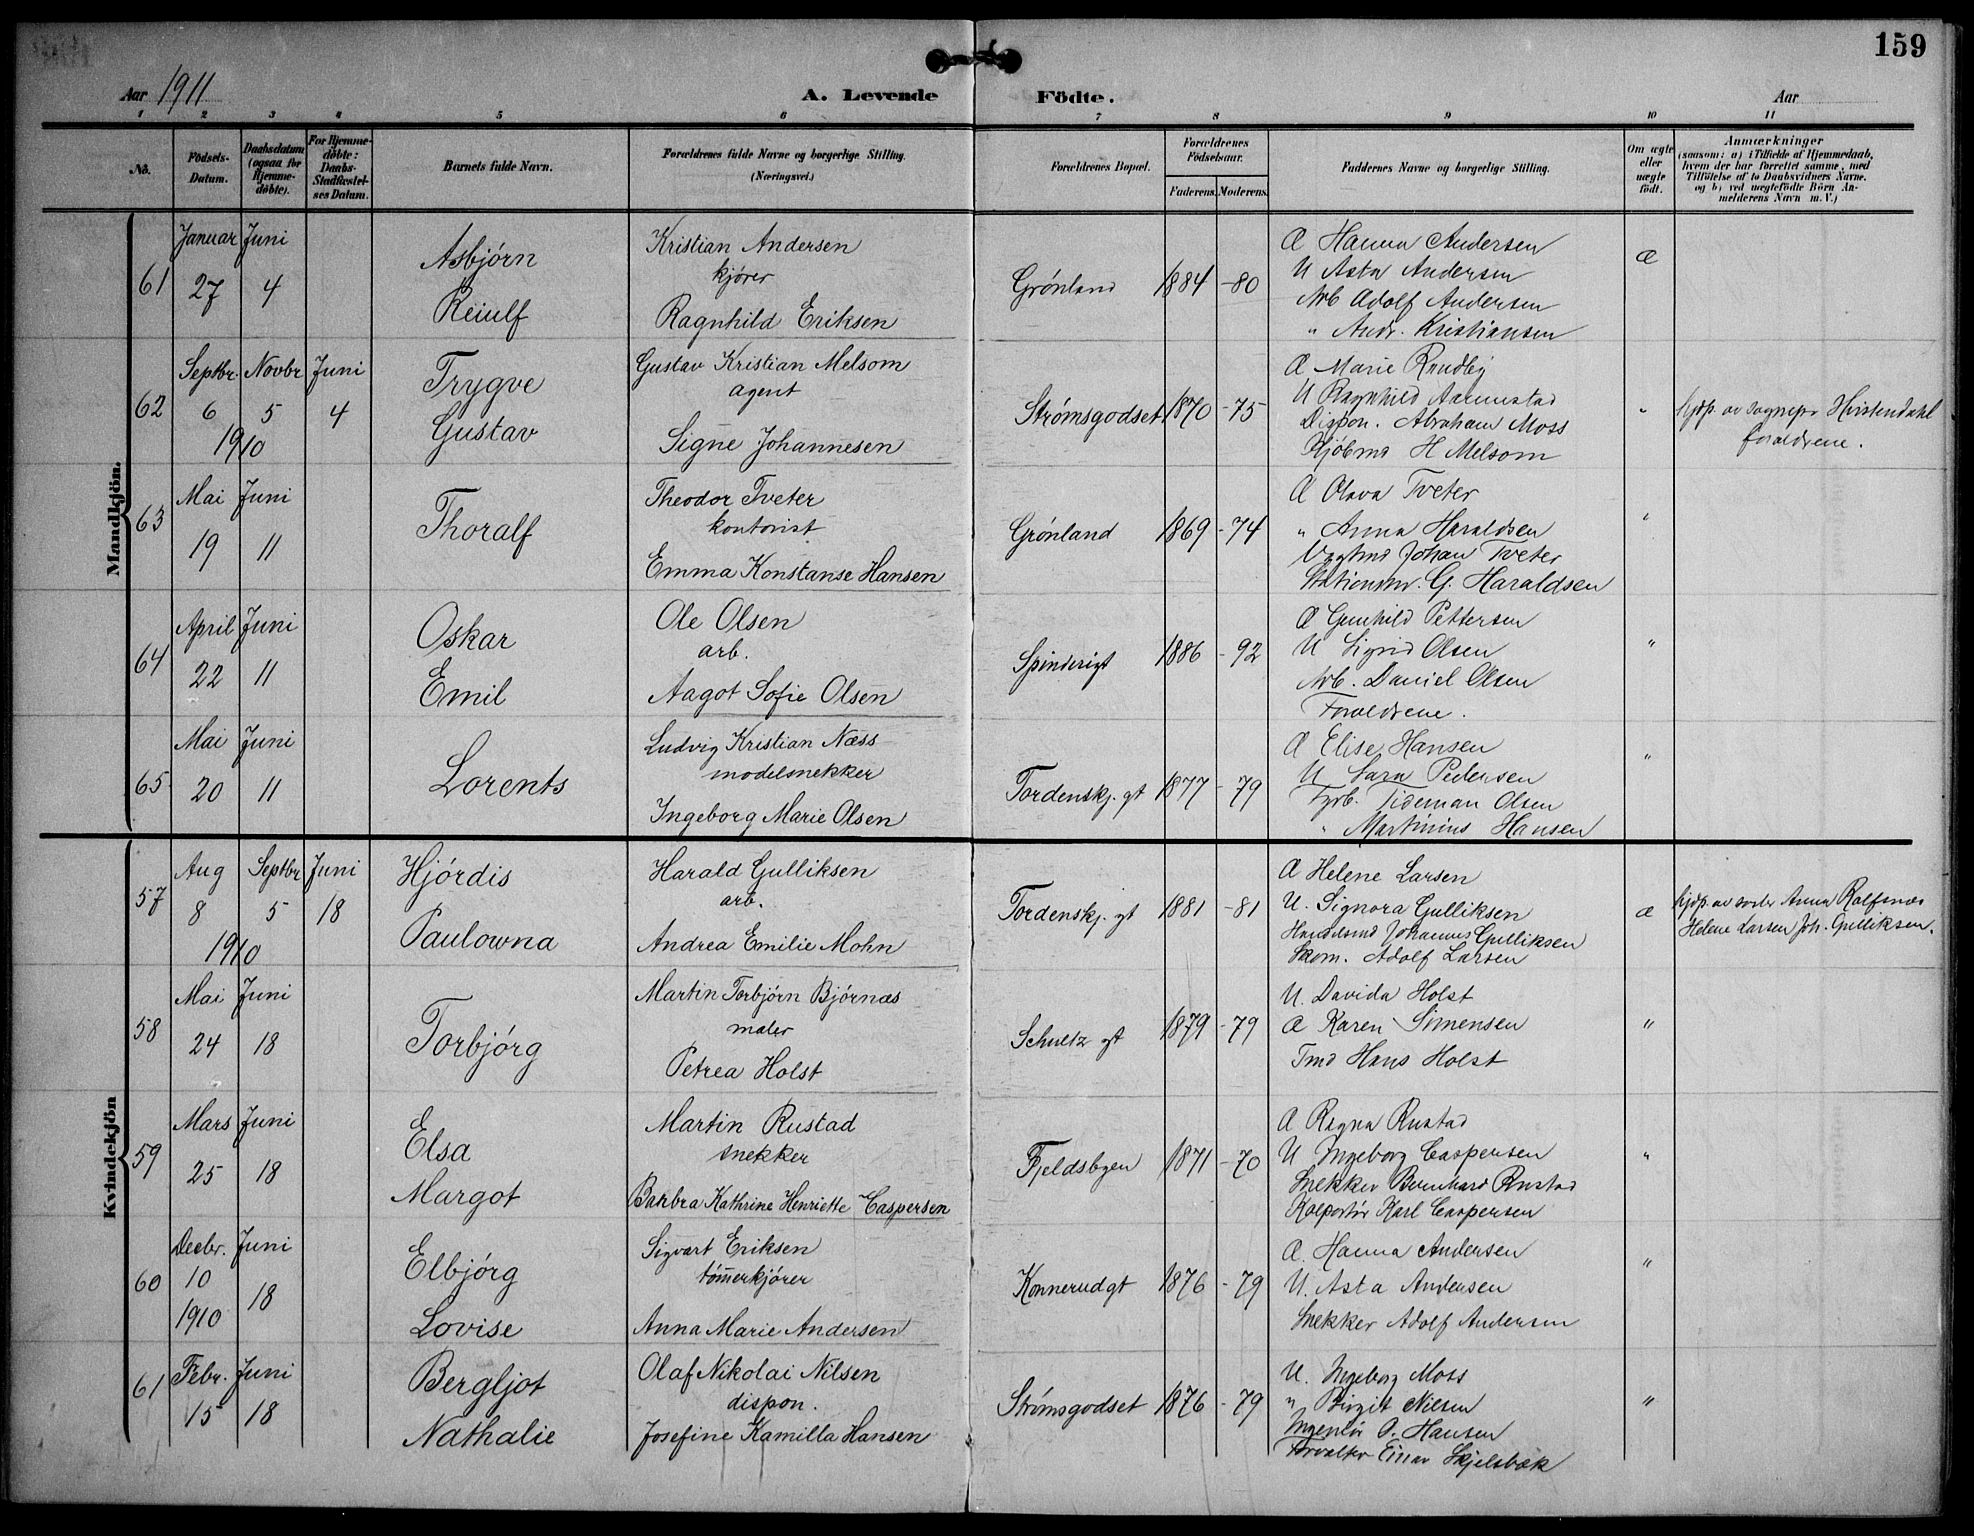 159
Aar 1911
A. Levende Födte.
Aar
1 2 3 4 5 6 7 8 9 10 11
No. Födsels-Datum. Daabsdatum (ogsaa for Hjemmedöbte). For Hjemmedöbte: Daabs-Stadfæstelses Datum. Barnets fulde Navn. Forældrenes fulde Navne og borgerlige Stilling. (Næringsvei.) Forældrenes Bopæl. Forældrenes Födselsaar. Faderens. Moderens. Faddernes Navne og borgerlige Stilling. Om ægte eller uægte födt. Anmærkninger (saasom: a) i Tilfælde af Hjemmedaab, hvem der har forrettet samme, med Tilföielse af to Daabsvidners Navne, og b) ved uægtefödte Börn Anmelderens Navn m. V.)
Mandkjön.
61 Januar 27 Juni 4
Asbjørn Reiulf
Kristian Andersen
kjører
Ragnhild Eriksen
Grønland 1884 -80
Æ Hanna Andersen
U Asta Andersen
Arb Adolf Andersen
" Andr. Kristiansen
Æ
62 Septbr. 6 1910 Novbr 5 Juni 4
Trygve Gustav
Gustav Kristian Melsom
agent
Signe Johannesen
Strømsgodset 1870 -75
Æ Marie Rundby
U Ragnhild Aarmestad
Dispon. Abraham Moss
Kjøbmd H Melsom
"
hjdp. av sognepr Hvistendahl
foraldrene.
63 Mai 19 Juni 11
Thoralf
Theodor Tveter
kontorist
Emma Konstanse Hansen
Grønland 1869 -74
Æ Olava Tveter
" Anna Haraldsen
Johan Tveter
Stationsm. G. Haraldsen
"
64 April 22 Juni 11
Oskar Emil
Ole Olsen
arb.
Aagot Sofie Olsen
Spinderigt 1886 -92
Æ Gunhild Pettersen
U Sigrid Olsen
Arb. Daniel Olsen
Foraldrene.
"
65 Mai 20 Juni 11
Lorents
Ludvig Kristian Næss
modelsnekker
Ingeborg Marie Olsen
Tordenskj. gt 1877 -79
Æ Elise Hansen
U Sara Pedersen
Fyrb. Tideman Olsen
" Martinius Hansen
"
Kvindekjön
57 Aug 8 1910 Septbr 5 Juni 18
Hjórdis Paulowna
Harald Gulliksen
arb.
Andrea Emilie Mohn
Tordenskj. gt 1881 -81
Æ Helene Larsen
U. Signora Gulliksen
Handelsmd Johannes Gulliksen
Skom. Adolf Larsen
Æ
hjdp. av jorder Anna Rolfsnes
Helene Larsen Joh. Gulliksen.
58 Mai 24 Juni 18
Torbjórg
Martin Torbjórn Bjórnæs
maler
Petrea Holst
Schultz gt 1879 -79
U. Davida Holst
Æ Karen Simensen
Tmd Hans Holst
"
59 Mars 25 Juni 18
Elsa Margot
Martin Rustad
snekker
Barbra Kathrine Henriette Caspersen
Fjeldsbyen 1871 -70
Æ Ragna Rustad
U Ingeborg Caspersen
Snekker Bernhard Rustad
Kolportør Karl Caspersen
"
60 Decbr. 10 1910 Juni 18
Elbjórg Lovise
Sigvart Eriksen
tømmerkjører
Anna Marie Andersen
Konnerudgt 1876 -79
Æ. Hanna Andersen
U. Asta Andersen
Snekker Adolf Andersen
"
61 Febr. 15 Juni 18
Bergljot Nathalie
Olaf Nikolai Nilsen
dispon.
Josefine Kamilla Hansen
Strømsgodset 1876 -79
U. Ingeborg Moss
" Birgit Nilsen
Ingeniør O. Hansen
Forvalter Einar Skjelsbæk
"